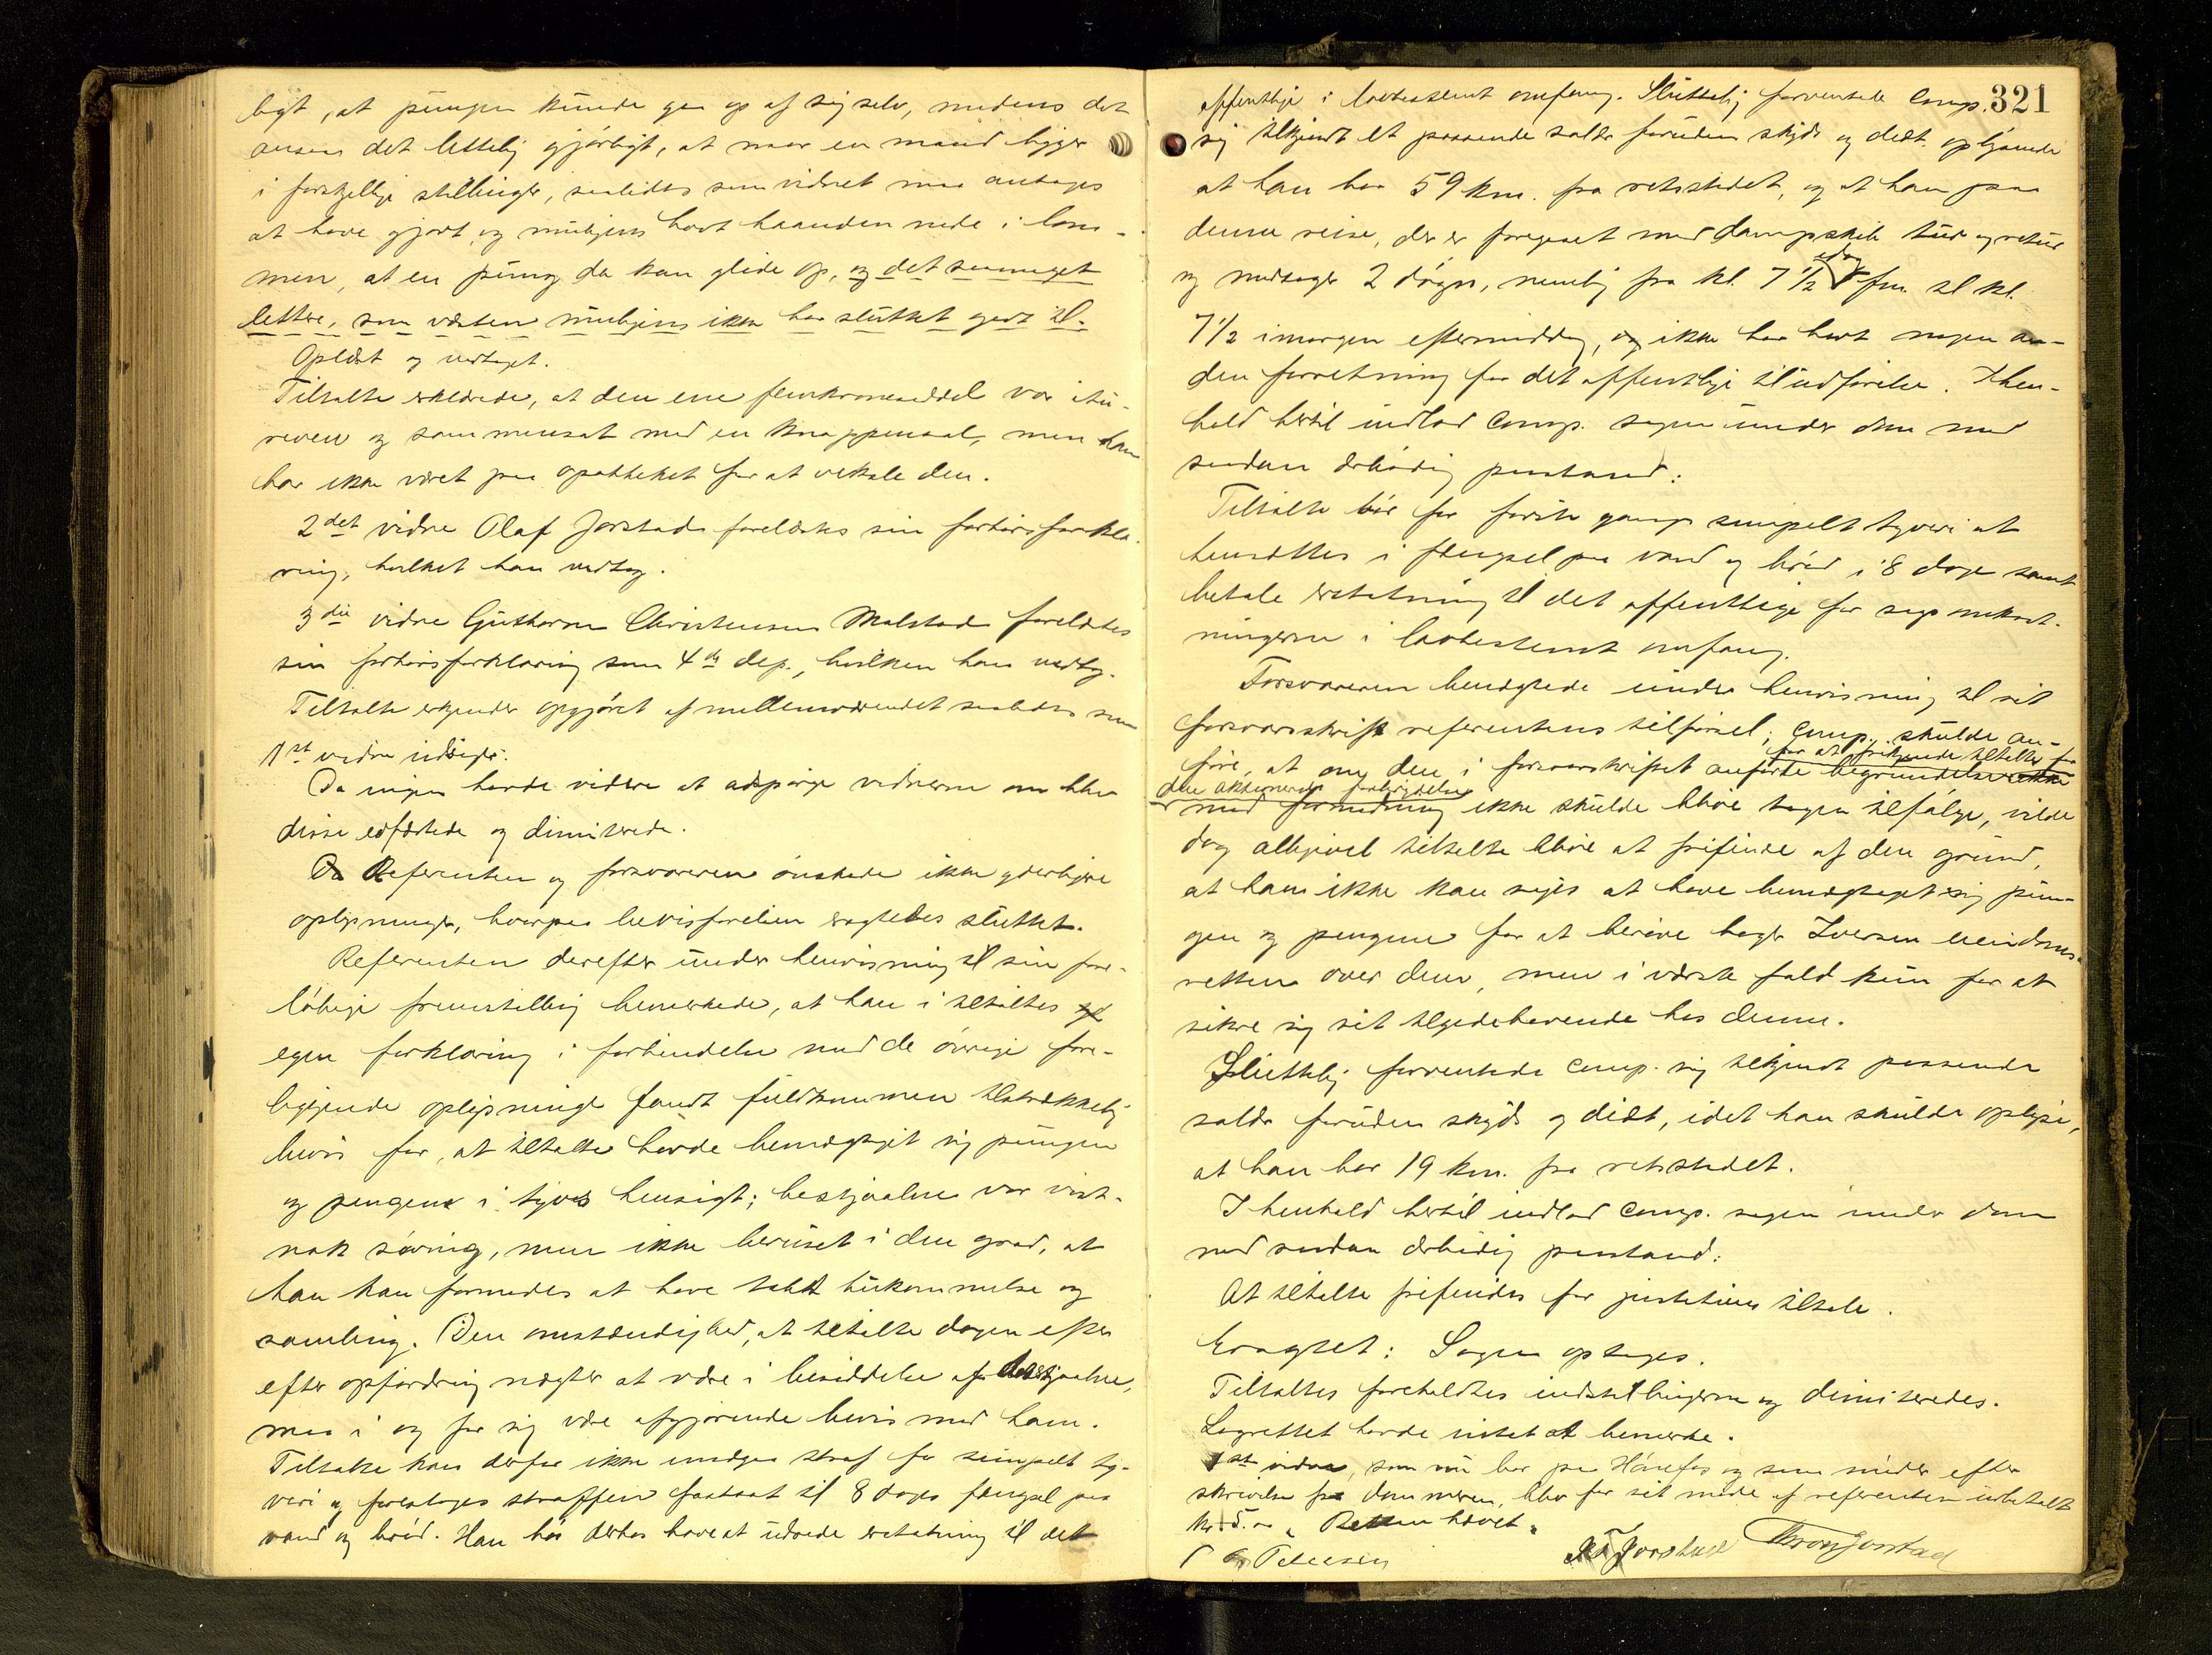 ligt, at pungen kunde gaa op af sig selv, medens det
ansees det lettelig gjørligt, at naar en mand ligger
i forskjellige stillinger, saaledes som vidnet maa antages
at have gjort, og muligens havt haanden nede i lom-
men, at en pung da kan glide op, og det saameget
lettere, som væsken muligens ikke har sluttet godt til.
Oplæst og vedtaget.
Tiltalte erklærede, at den ene femkroneseddel var itu-
reven og sammensat med en knappenaal, men han
har ikke været paa apotheket for at veksle den.
2det vidne Olaf Jorstad forelæstes sin forhørsforkla-
ring, hvilket han vedtog.
3die vidne Guthorm Christensen Malstad forelæstes
sin forhørsforklaring som 4de dep., hvilken han vedtog.
Tiltalte erkjender opgjøret af mellemværendet saaledes som
1ste vidne udsiger.
Da ingen havde videre at adspørge vidnerne om blev
disse edfæstede og dimiterede.
Referenten og forsvareren ønskede ikke yderligere
oplysninger, hvorpaa bevisførelsen eragtedes sluttet.
Referenten derefter under henvisning til sin fore-
løbige fremstilling bemerkede, at han i tiltaltes
egen forklaring i forbindelse med de øvrige fore-
liggende oplysninger fandt fuldkommen tilstrækkelig
bevis for, at tiltalte havde bemægtiget sig pungen
og pengene i tyvs hensigt; bestjaalne var vist-
nok søvnig, men ikke beruset i den grad, at
han kan formodes at have tabt hukommelse og
samling. Den omstændighed, at tiltalte dagen efter
efter opfordring nægter at være i besiddelse af det stjaalne,
maa i og for sig være afgjørende bevis mod ham.
Tiltalte kan derfor ikke undgaa straf for simpelt ty-
veri og foreslages straffen fastsat til 8 dages fængsel paa
vand og brød. Han bør derhos have at udrede erstatning til det
321
offentlige i lovbestemt omfang. Sluttelig forventede comp.
sig tilkjendt et passende salær foruden skyds og diæt, oplysende
at han bor 59 km. fra retsstedet, og at han paa
denne reise, der er foregaaet med dampskib tur og retur
og medtager 2 døgn, nemlig fra kl. 7 1/2 idag fm. til kl.
7 1/2 imorgen eftermiddag, og ikke har havt nogen an-
den forretning for det offentlige til udførelse. I hen-
hold hertil indlod comp. sagen under dom med
saadan ærbødig paastand:
Tiltalte bør for første gangs simpelt tyveri at
hensættes i fængsel paa vand og brød i 8 dage samt
betale erstatning til det offentlige for sagsomkost-
ningerne i lovbestemt omfang.
Forsvareren benægtede under henvisning til sit
forsvarsskrift referentens tilførsel; comp. skulde an-
for at frikjende tiltalte for
føre, at om den i forsvarsskriftet anførte begrundelse
den aktionerede forbrydelse
ikke skulde blive tagen tilfølge, vilde
dog alligevel tiltalte blive at frifinde af den grund,
at han ikke kan siges at have bemægtiget sig pun-
gen og pengene for at berøve bager Iversen eiendoms-
retten over dem, men i værste fald kun for at
sikre sig sit tilgodehavende hos denne.
Sluttelig forventede comp. sig tilkjendt passende
salær foruden skyds og diæt, idet han skulde oplyse,
at han bor 19 km. fra retsstedet.
I henhold hertil indlod comp. sagen under dom
med saadan ærbødig paastand:
At tiltalte frifindes for justitiens tiltale.
Eragtet: Sagen optages.
Tiltaltes foreholdtes indstillingerne og dimiteredes.
Lagrettet havde intet at bemerke.
1ste vidne, som nu bor paa Hønefos og som møder efter
skrivelse fra dommeren, blev for sit møde af referenten udbetalt
kr. 5.00. Retten hævet.
Petersen Jorstad Jorstad